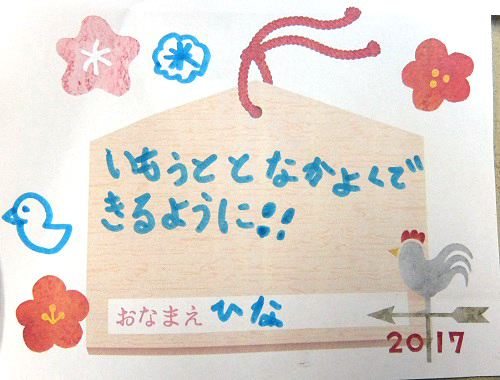 いもうととなかよくで
きるように!!
おなまえ ひな
2017